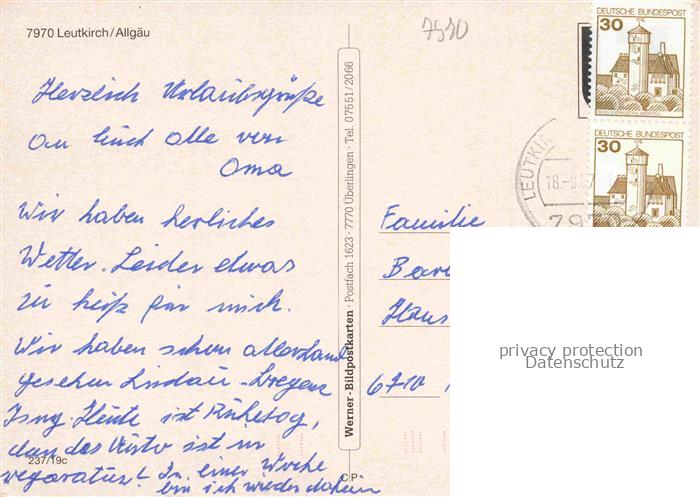 7970 Leutkirch/Allgäu
7970
DEUTSCHE BUNDESPOST
30
DEUTSCHE BUNDESPOST
30
LEUTKIR
18.-8.
797
Herzlich Urlaubsgrüße
an Euch alle von
Oma
Wir haben herliches
Wetter. Leider etwas
zu heiß für mich.
Wir haben schon allerhand
gesehen Lindau - Bregenz
Isny. Heute ist Ruhetag,
den das Auto ist in
reparatur! In einer Woche
bin ich wieder daheim
237/19c
Werner-Bildpostkarten · Postfach 1623 · 7770 Überlingen · Tel. 07551/2066
CP
Familie
Hans
6710
privacy protection
Datenschutz